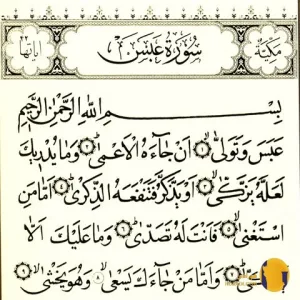 مكية سورة عبس آياتها
بِسْمِ اللهِ الرَّحْمٰنِ الرَّحِيْمِ
عَبَسَ وَتَوَلّٰىۙ اَنْ جَآءَهُ الْاَعْمٰىؕ وَمَا يُدْرِيْكَ
لَعَلَّهٗ يَزَّكّٰىۙ اَوْ يَذَّكَّرُ فَتَنْفَعَهُ الذِّكْرٰىؕ اَمَّا مَنِ
اسْتَغْنٰىۙ فَاَنْتَ لَهٗ تَصَدّٰىؕ وَمَا عَلَيْكَ اَلَّا
وَاَمَّا مَنْ جَآءَكَ يَسْعٰىۙ وَهُوَ يَخْشٰىۙ